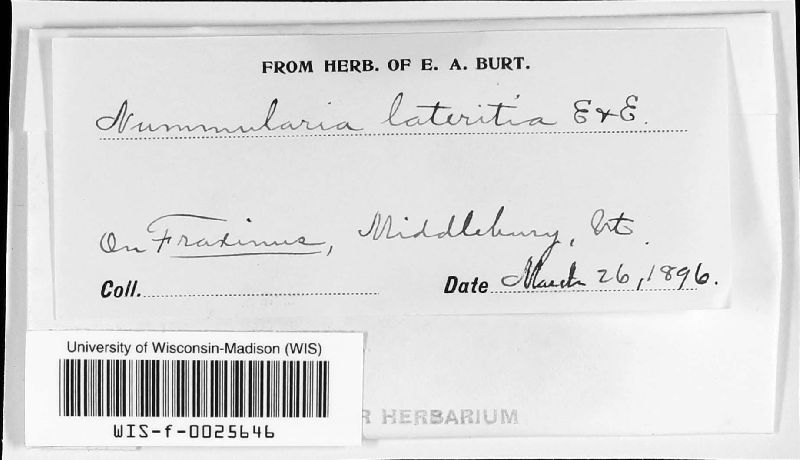 FROM HERB. OF E. A. BURT.
Nummularia lateritia E & E.
On Fraxinus, Middlebury, Vt.
Coll. Date March 26, 1896.
University of Wisconsin-Madison (WIS)
WIS-f-0025646
R HERBARIUM